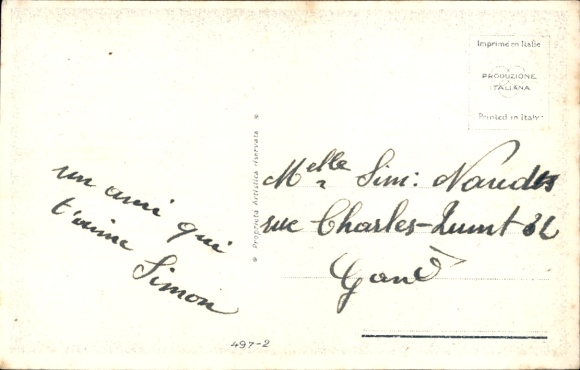 un ami qui
t'aime
Simon
Proprietà Artistica riservata
497-2
Imprimé en Italie
PRODUZIONE
ITALIANA
Printed in Italy
Melle Sim:
rue Charles-Quint
Gand